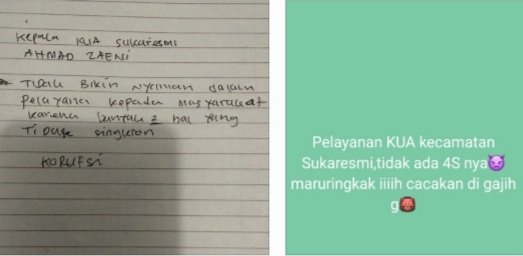 Kepala KUA Sukaresmi
AHMAD ZAENI
Tidak Bikin nyaman dalam
pelayanan kepada masyarakat
karena banyak2 hal yang
Tidak singkron
KORUFSI
Pelayanan KUA kecamatan
Sukaresmi,tidak ada 4S nya😈
maruringkak iiiih cacakan di gajih
g👹